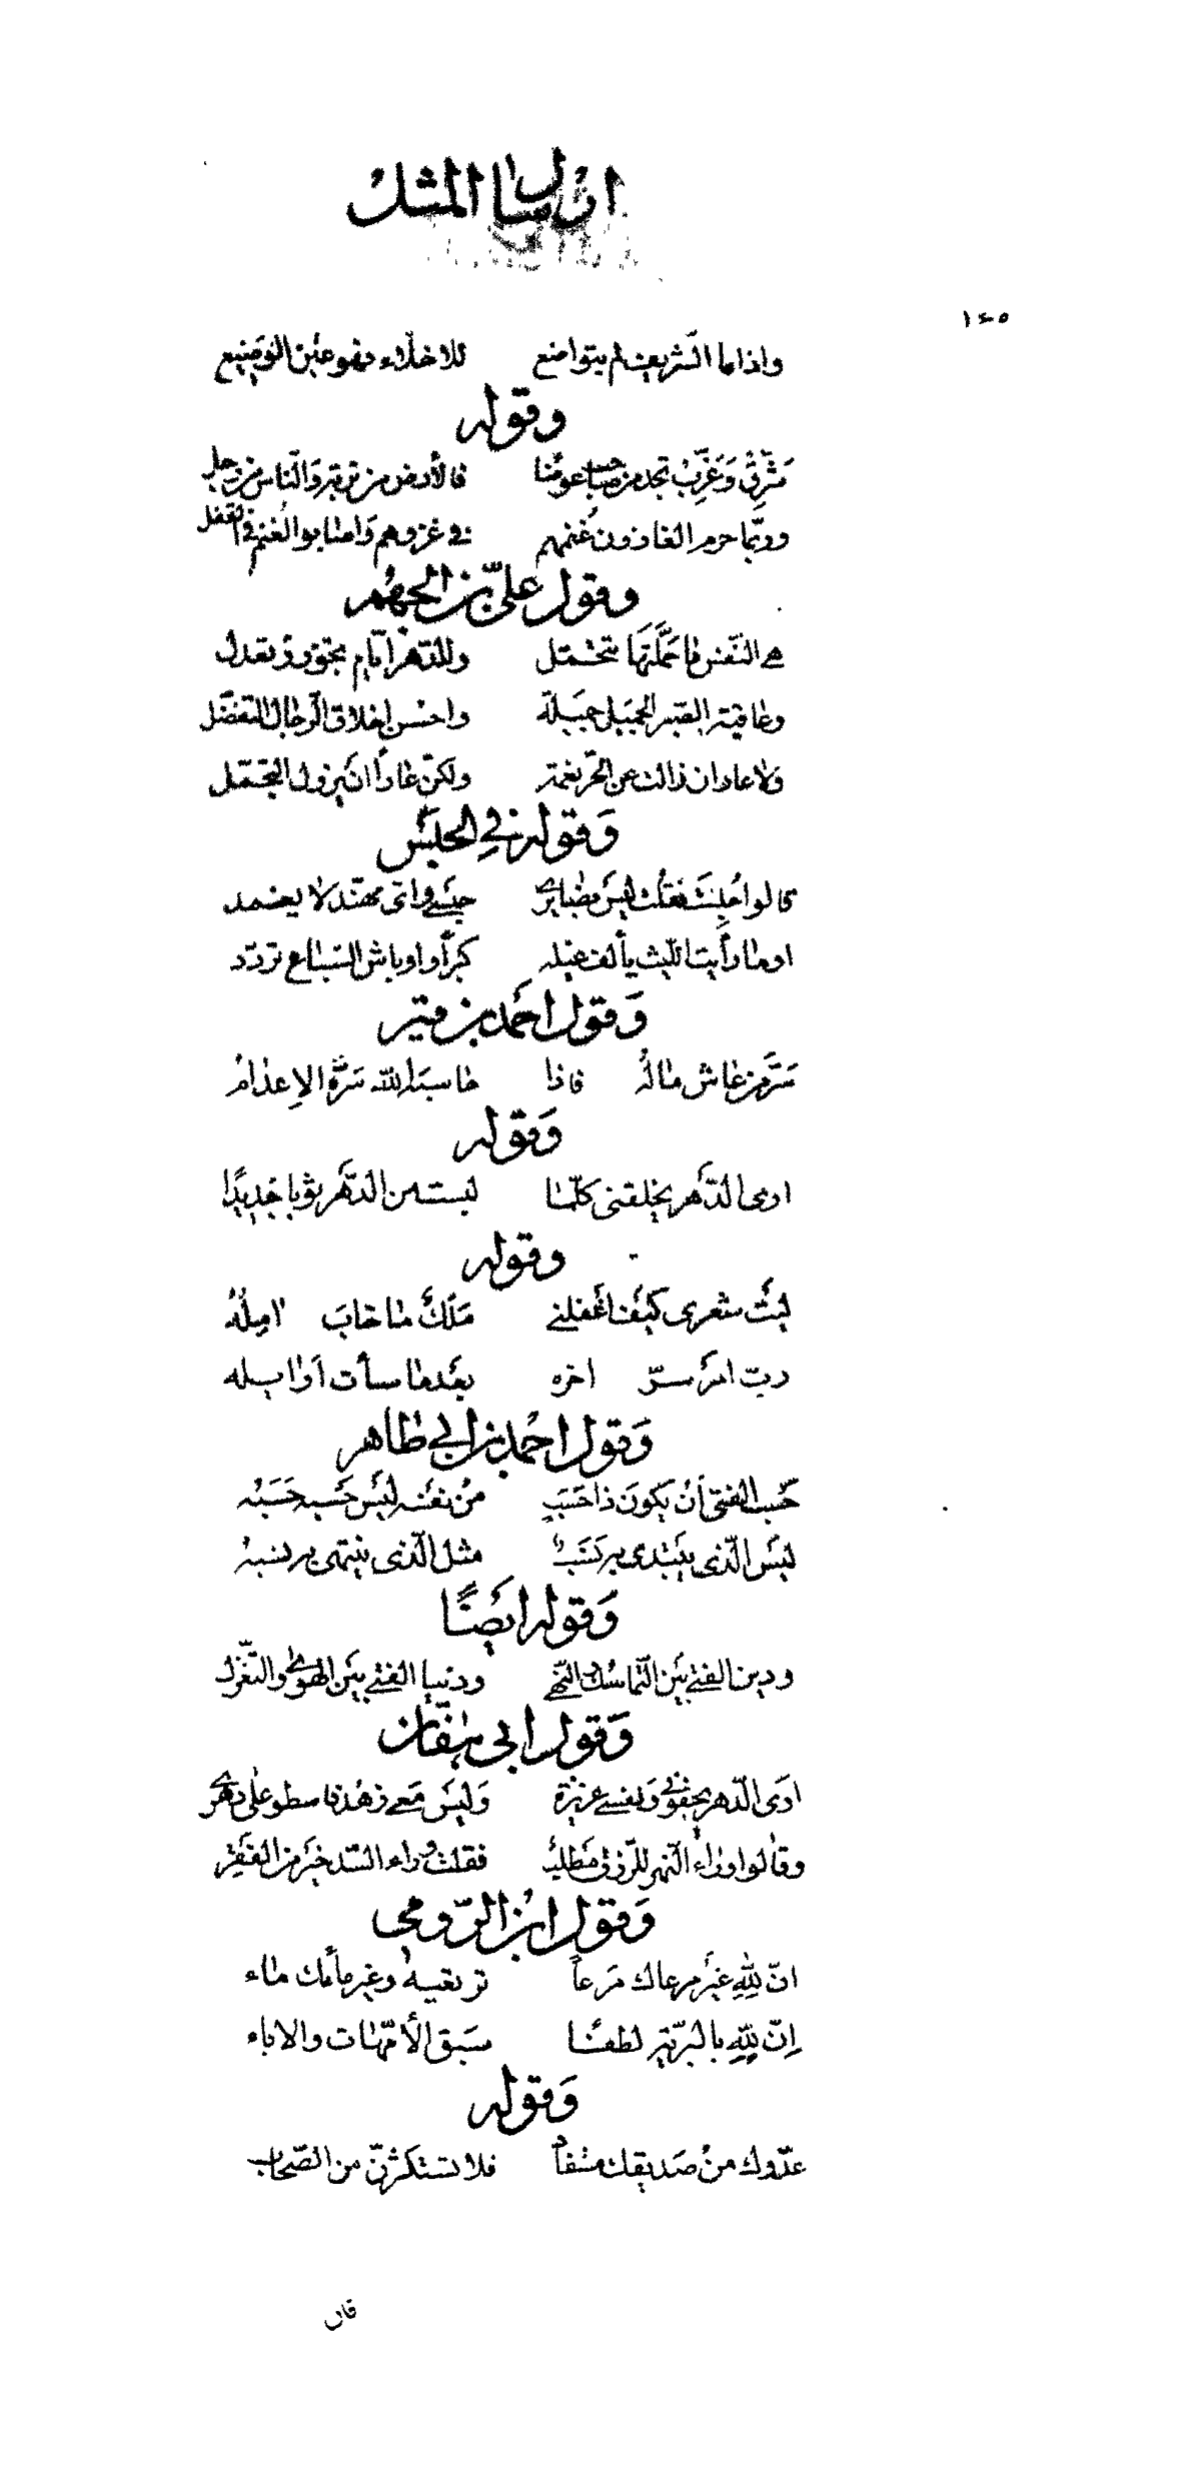 ارسال المثل
١٤٥
واذا ما الشّريف لم يتواضع للاخلّاء فهو عين الوضيع
وقوله
شَرِّقْ وَغَرِّبْ تجد من صاحب عوضًا فالأرض من تربة وَالنّاس من رجل
وربّما حرم الغازون غُنمهم في غزوهم وَاصابوا الغُنم في القفل
وقول علىّ بن الجهم
هي النّفس ما حَمَّلْتَهَا تتحمّل وللدّهر أيّام تجور وتعدل
وعاقبة الصّبر الجميل جميلة واحسن اخلاق الرّجال التفضّل
ولا عار ان زالت عن الحرّ نعمة ولكنّ عارًا ان يزول التجمّل
وَقوله في الحبس
قالوا حُبِسْتَ فقلت ليس بضائري حبسي وائ مهنّد لا يغمد
اوما رأيت اللّيث يألف غيله كبرًا واوباش السّباع تردّد
وَقول احمد بن
سَرَّ من عاش مالُهُ فاذا حاسبه اللّه سَرَّهُ الإعدامُ
وَقوله
ارى الدّهر يخلقنى كلّما لبست من الدّهر ثوبا جديدًا
وقوله
ليتَ شعرى كيف اغفلنى مَلَكٌ ما خابَ امِلُهُ
ربّ امر سرّ اخره بعدما سأت اوايله
وَقول احمد بن ابي طاهر
حَسب الفتى أنْ يكونَ ذا حَسَبٍ منْ نفسه ليسَ حَسبه حَسَبُه
ليسَ الّذى يبتدى به نَسَبٌ مثل الّذى ينتهى به نسبه
وَقوله ايضًا
ودين الفتى بين التّماسك والنّهى ودنيا الفتى بين الهوى والتّغزّل
وَقول ابى هفّان
ارى الدّهر يجفونى وَنفسي عزيزة وَليسَ مَعي زهد فاسطو على دهري
وقالوا وراء النّهر للرّزق مَطلبٌ فقلت وراء السّدّ خير من الفقر
وَقول ابن الرّومى
انّ لِلّٰهِ غير مرعاك مَرعاً ترتعيه وغير مائك ماء
إنّ لِلّٰهِ بالبريّة لطفًا سبق الأمّهات والاباء
وَقوله
عدّوك منْ صَديقك مستفاد فلا تستكثرنّ من الصّحاب
فان